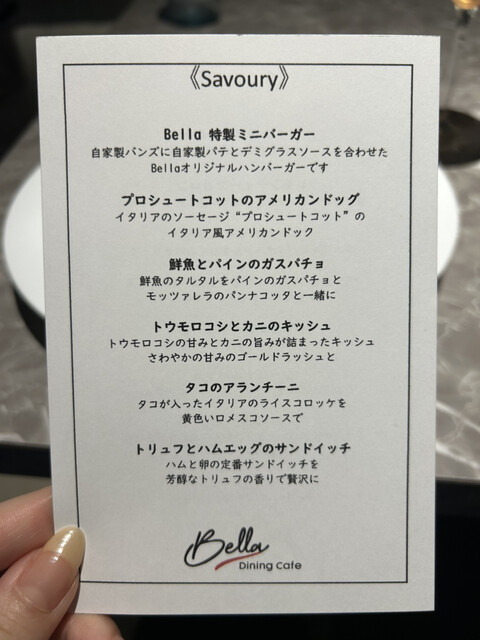 《Savoury》
Bella 特製ミニバーガー
自家製バンズに自家製パテとデミグラスソースを合わせた
Bellaオリジナルハンバーガーです
プロシュートコットのアメリカンドッグ
イタリアのソーセージ“プロシュートコット”の
イタリア風アメリカンドック
鮮魚とパインのガスパチョ
鮮魚のタルタルをパインのガスパチョと
モッツァレラのパンナコッタと一緒に
トウモロコシとカニのキッシュ
トウモロコシの甘みとカニの旨みが詰まったキッシュ
さわやかの甘みのゴールドラッシュと
タコのアランチーニ
タコが入ったイタリアのライスコロッケを
黄色いロメスコソースで
トリュフとハムエッグのサンドイッチ
ハムと卵の定番サンドイッチを
芳醇なトリュフの香りで贅沢に
Bella
Dining Cafe